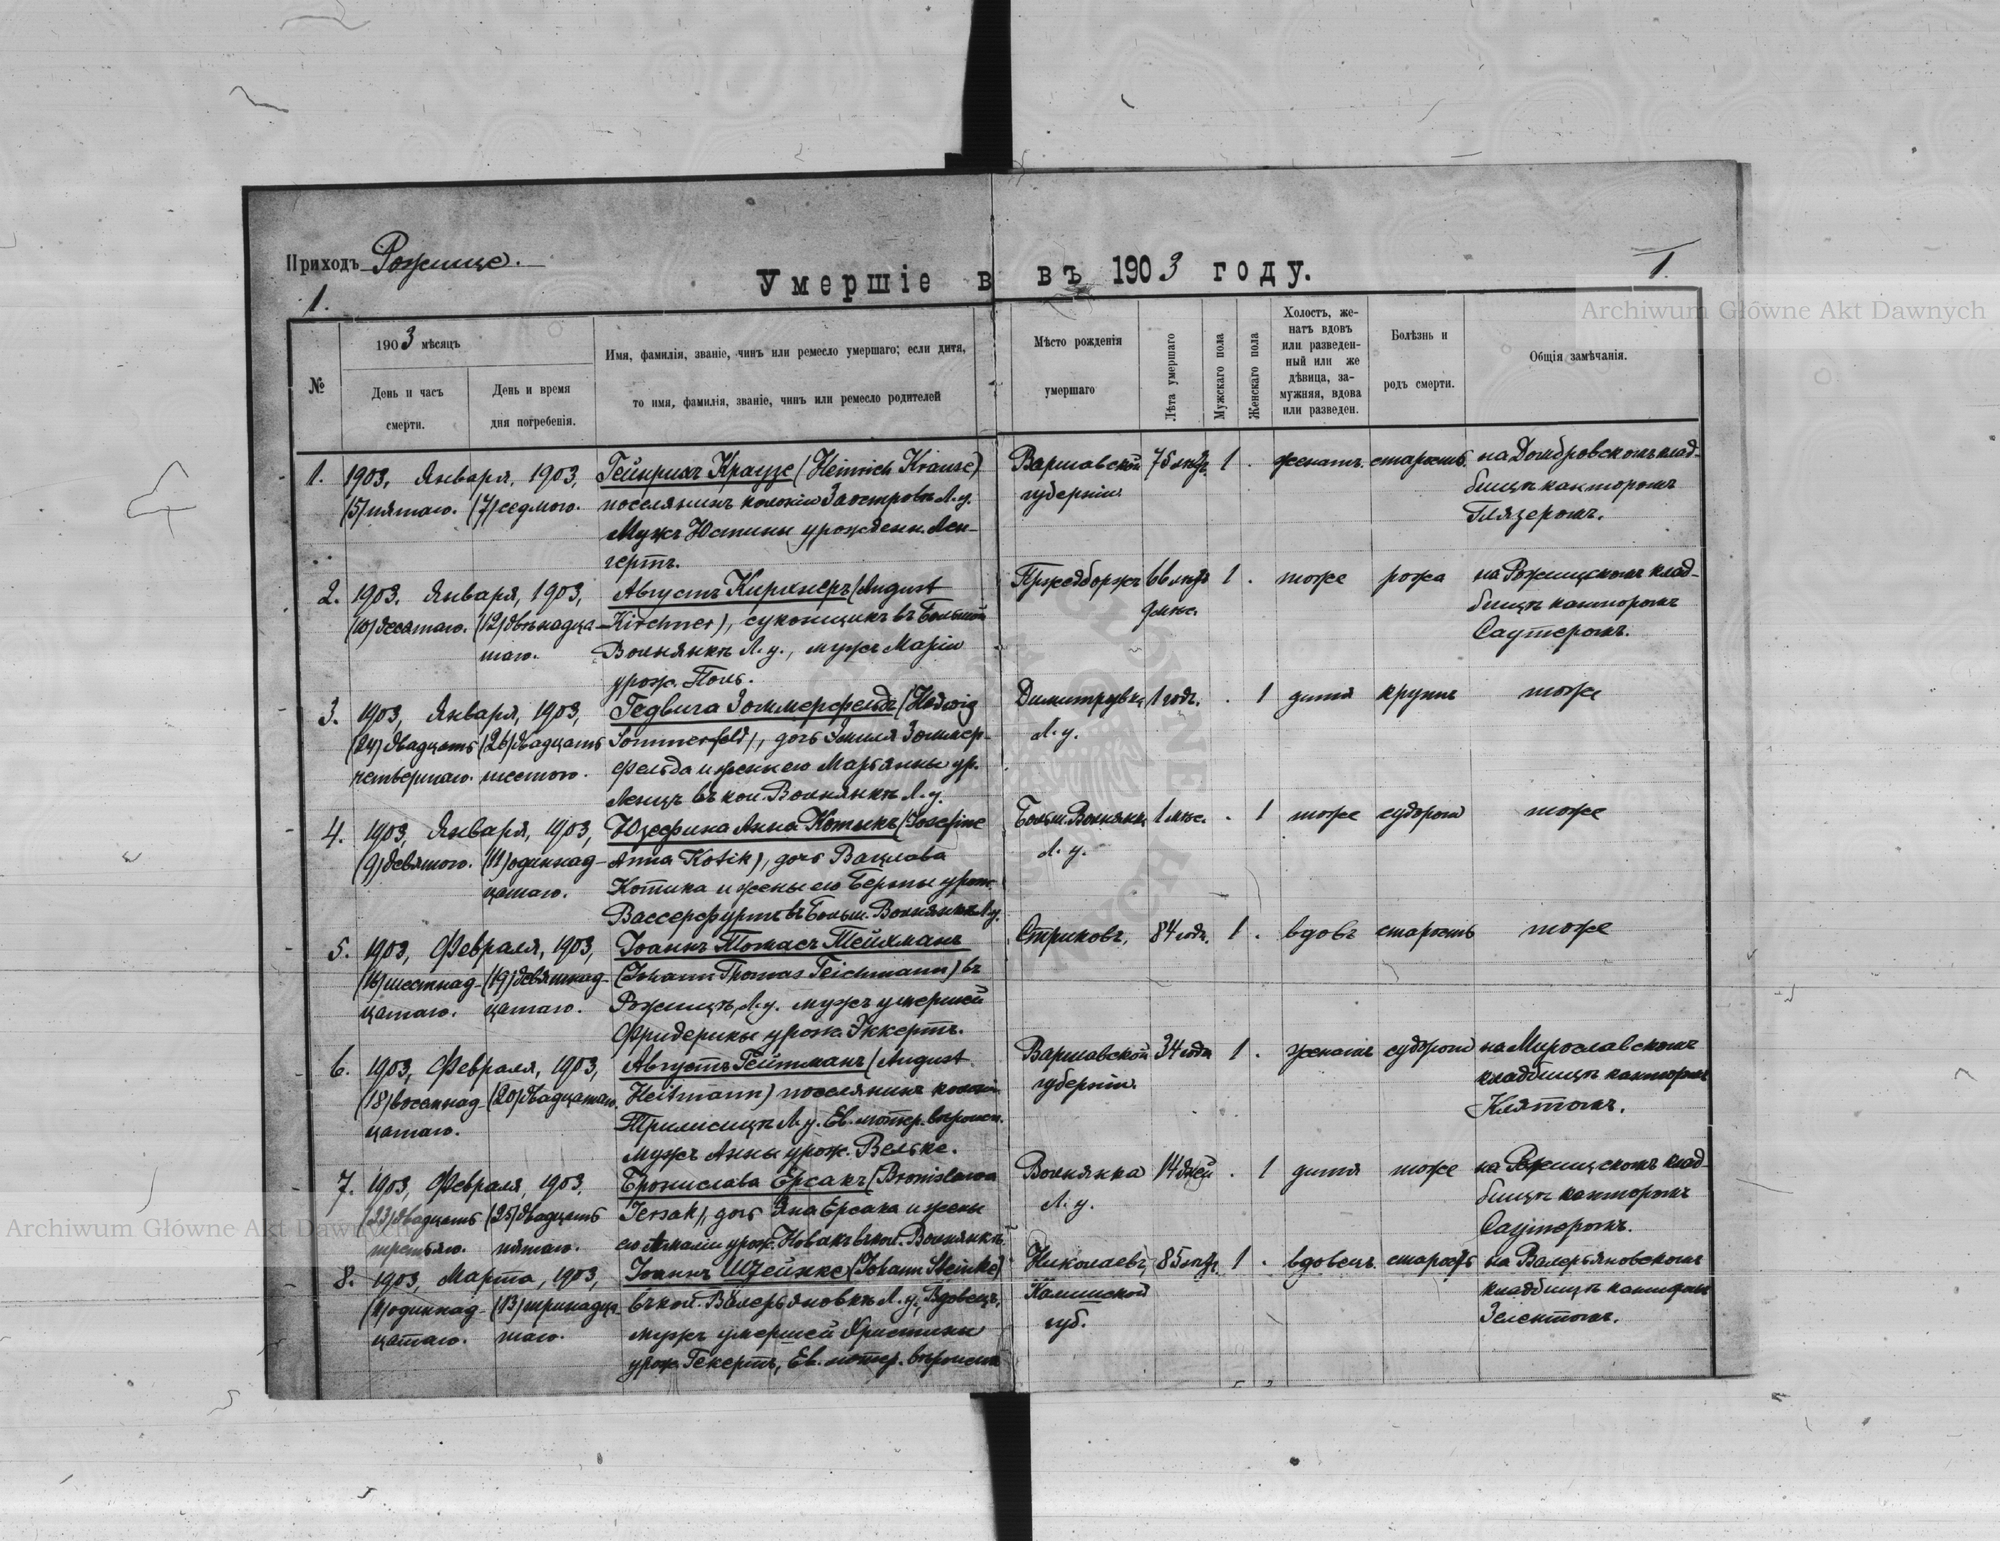 Приходъ Рожище.
Умершіе в въ 1903 году.
1.
1.
Archiwum Główne Akt Dawnych
№
1903 мѣсяцъ
День и часъ
смерти.
День и время
дня погребенія.
Имя, фамилія, званіе, чинъ или ремесло умершаго; если дитя,
то имя, фамилія, званіе, чинъ или ремесло родителей
Мѣсто рожденія
умершаго
Лѣта умершаго
Мужскаго пола
Женскаго пола
Холостъ, же-
натъ вдовъ
или разведен-
ный или же
дѣвица, за-
мужняя, вдова
или разведен.
Болѣзнь и
родъ смерти.
Общія замѣчанія.
1. 1903, Января, 1903, Гейнрихъ Краузе (Heinrich Krause) Варшавской 75 лѣтъ 1 . женатъ старость на Домбровскомъ клад-
(5) пятаго. (7) седьмого. поселянинъ колоніи Заостровъ Л. у. губерніи бищѣ канторомъ
Мужъ Юстины урожденн. Лен- Глязеромъ.
гертъ.
2. 1903, Января, 1903, Августъ Кирхнеръ (August Пржедборжъ 66 лѣтъ 1 . тоже рожа на Рожищскомъ клад-
(10) десятаго. (12) двѣнадца- Kirchner), суконщикъ въ Большой 9 мѣс. бищѣ канторомъ
таго. Волнянкѣ Л. у., мужъ Маріи Саутеромъ.
урож. Поль.
3. 1903, Января, 1903, Гедвига Зоммерфельдъ (Hedwig Димитровка 1 годъ. . 1 дитя крупъ тоже
(24) двадцать (26) двадцать Sommerfeld), дочь Эмиля Зоммер- Л. у.
четвертаго. шестого. фельда и жены его Марьянны ур.
Ленцъ въ кол. Волнянкѣ Л. у.
4. 1903, Января, 1903, Юзефина Анна Котикъ (Josefine Больш. Волнянка 1 мѣс. . 1 тоже судороги тоже
(9) девятого. (11) одиннад- Anna Kotik), дочь Вацлава Л. у.
цатаго. Котика и жены его Берты урож.
Вассерфуртъ въ Больш. Волнянкѣ Л. у.
5. 1903, Февраля, 1903, Іоаннъ Томасъ Тейхманъ Стриковъ, 84 годъ. 1 . вдовъ старость тоже
(16) шестнад- (19) девятнад- (Johann Thomas Teichmann) въ
цатаго. цатаго. Рожищѣ, Л. у. мужъ умершей
Фридерики урож. Эккертъ.
6. 1903, Февраля, 1903, Августъ Гейтманъ (August Варшавской 34 года 1 . женатъ судороги на Мирославскомъ
(18) восемнад- (20) двадцатаго. Heitmann) поселянинъ колоніи губерніи кладбищѣ канторомъ
цатаго. Трилисицѣ Л. у. Ев. лютер. вѣроисп. Клятомъ.
мужъ Анны урож. Вельке.
7. 1903, Февраля, 1903, Брониславa Ерсакъ (Bronislawa Волнянка 14 дней . 1 дитя тоже на Рожищскомъ клад-
(23) двадцать (25) двадцать Jersak), дочь Яна Ерсака и жены Л. у. бищѣ канторомъ
третьяго. пятаго. его Амаліи урож. Новакъ въ кол. Волнянкѣ Саутеромъ.
8. 1903, Марта, 1903, Іоаннъ Штейнке (Johann Steinke) Николаевъ, 85 лѣтъ 1 . вдовецъ старость на Валерьяновскомъ
(11) одиннад- (13) тринадца- въ кол. Валерьяновкѣ Л. у. Вдовецъ, Калишской кладбищѣ канторомъ
цатаго. таго. мужъ умершей Христины губ. Зелентомъ.
урож. Гекертъ, Ев. лютер. вѣроисп.
Archiwum Główne Akt Dawnych